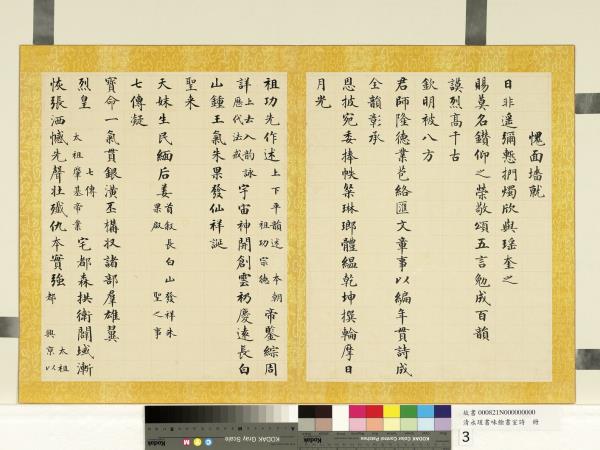 愧面墻就
日非遥彌慙捫燭欣與瑤奎之
賜莫名鑽仰之榮敬頌五言勉成百韻
謨烈高千古
欽明被八方
君師隆德業苞絡匯文章事以編年貫詩成
全韻彰承
恩披宛委捧帙粲琳瑯體緼乾坤撰輪摩日
月光
祖功先作述上下平韻述 本朝祖功宗德帝鑒綜周
詳上去入韻詠歷代法戒宇宙神開創雲礽慶遠長白
山鍾王氣朱果發仙祥誕
聖來
天妹生民緬后姜首叙長白山發祥朱果啟 聖之事
七傳凝
寶命一氣貫銀潢丕構收諸部羣雄翼
烈皇七傳太祖肇基帝業宅都森拱衛闢域漸
恢張洒憾先聲壯殲仇本實強太祖以都興京
Kodak Gray Scale
KODAK Color Control Patches
故書 000821N000000000
清永瑆書味餘書室詩 冊
3